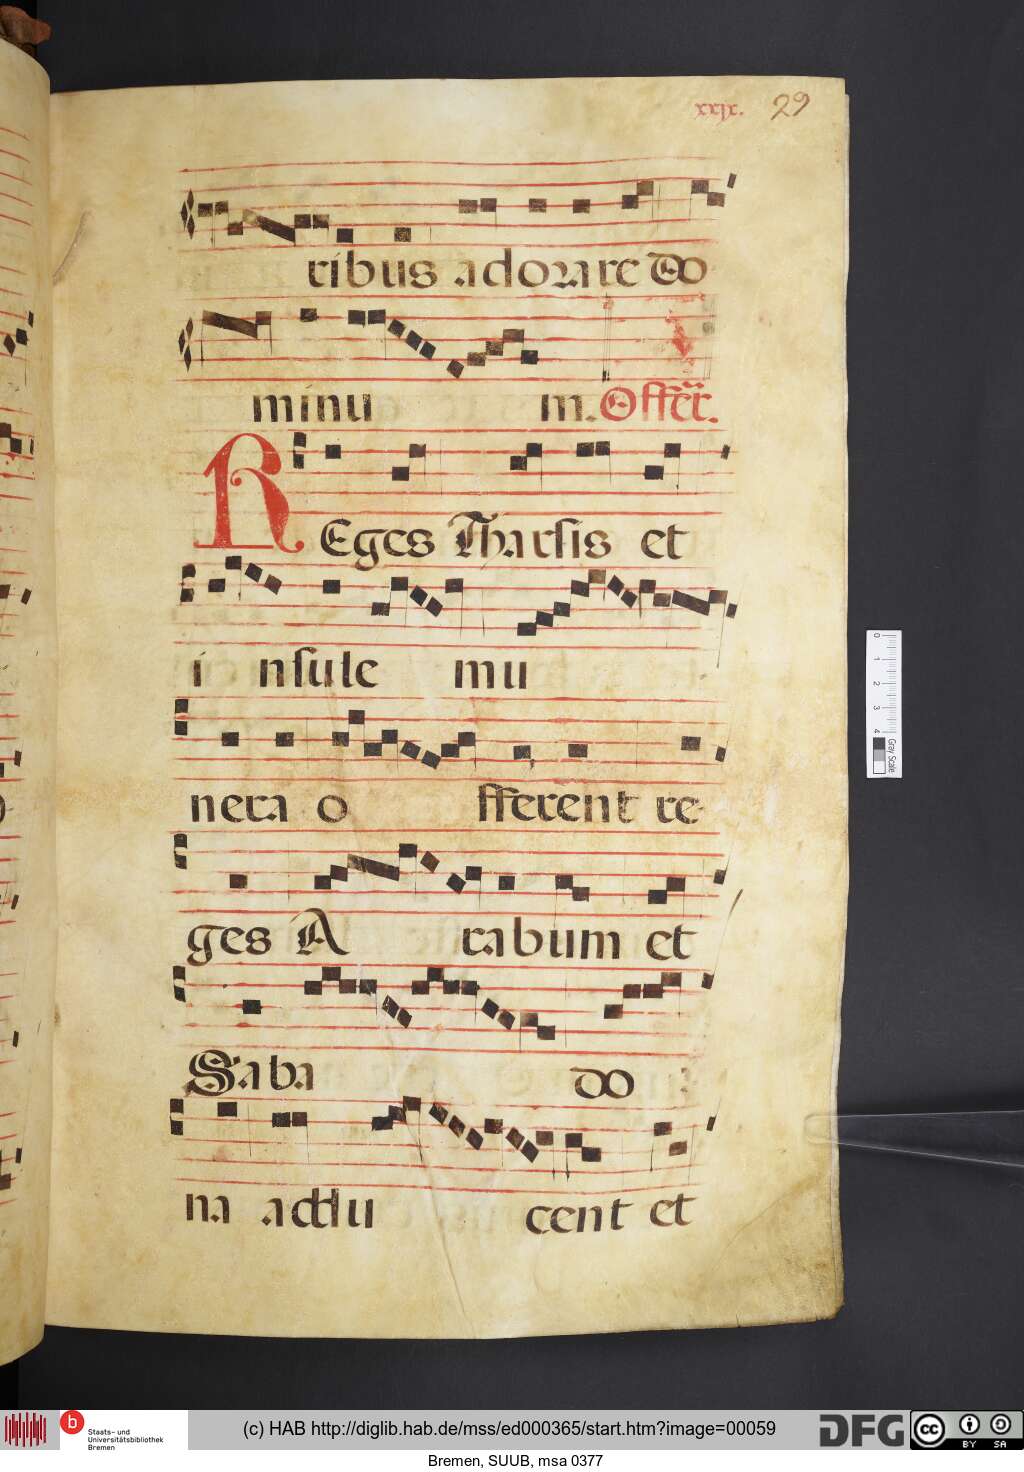 xxjx. 29
ribus adorare do
minu m. Offer.
REges Tharsis et
i nsule mu
nera o fferent re-
ges A rabum et
Saba do
na addu cent et
0 1 2 3 4 Gray Scale
b Staats- und Universitätsbibliothek Bremen
(c) HAB http://diglib.hab.de/mss/ed000365/start.htm?image=00059
DFG
cc BY SA
Bremen, SUUB, msa 0377